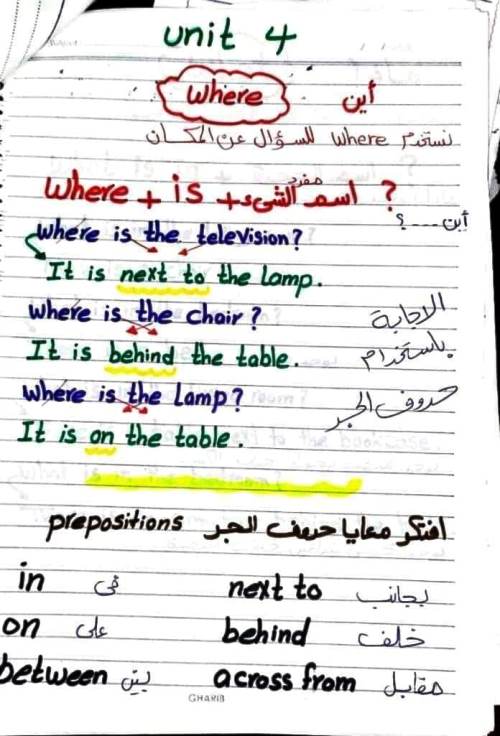 unit 4
where أين
نستخدم where للسؤال عن المكان
where + is + اسم الشيء مفرد ?
أين .... ؟
where is the television?
It is next to the lamp.
where is the chair?
الاجابة
It is behind the table.
باستخدام
where is the lamp?
حروف الجر
It is on the table.
prepositions افتكر معايا حروف الجر
in فى next to بجانب
on على behind خلف
between بين across from مقابل
GHARIB